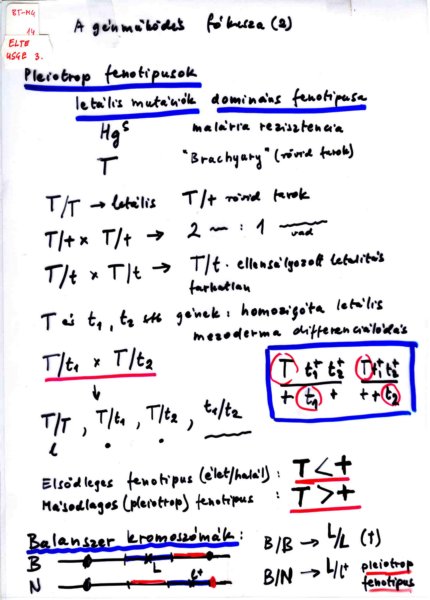 BT-MG
14
ELTE
USGE 3.
A génműködés fókusza (2)
Pleiotrop fenotípusok
letális mutációk domináns fenotípusa
Hgˢ malária rezisztencia
T "Brachyury" (rövid farok)
T/T → letális T/+ rövid farok
T/+ × T/+ → 2 ~ : 1 vad
T/t × T/t → T/t. ellensúlyozott letalitás
farkatlan
T és t₁, t₂ stb gének: homozigóta letális
mezoderma differenciálódás
T/t₁ × T/t₂
T t₁⁺ t₂⁺ T t₁⁺ t₂⁺
+ t₁ + + + t₂
↓
T/T, T/t₁, T/t₂, t₁/t₂
l
Elsődleges fenotípus (élet/halál): T < +
Másodlagos (pleiotrop) fenotípus: T > +
Balanszer kromoszómák:
B L B/B → L/L (†)
N l⁺ B/N → L/l⁺ pleiotrop
fenotípus